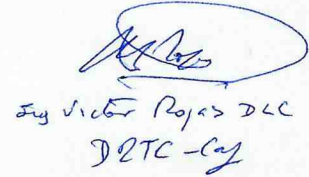 Ing Victor Rojas DLC
DRTC - Caj